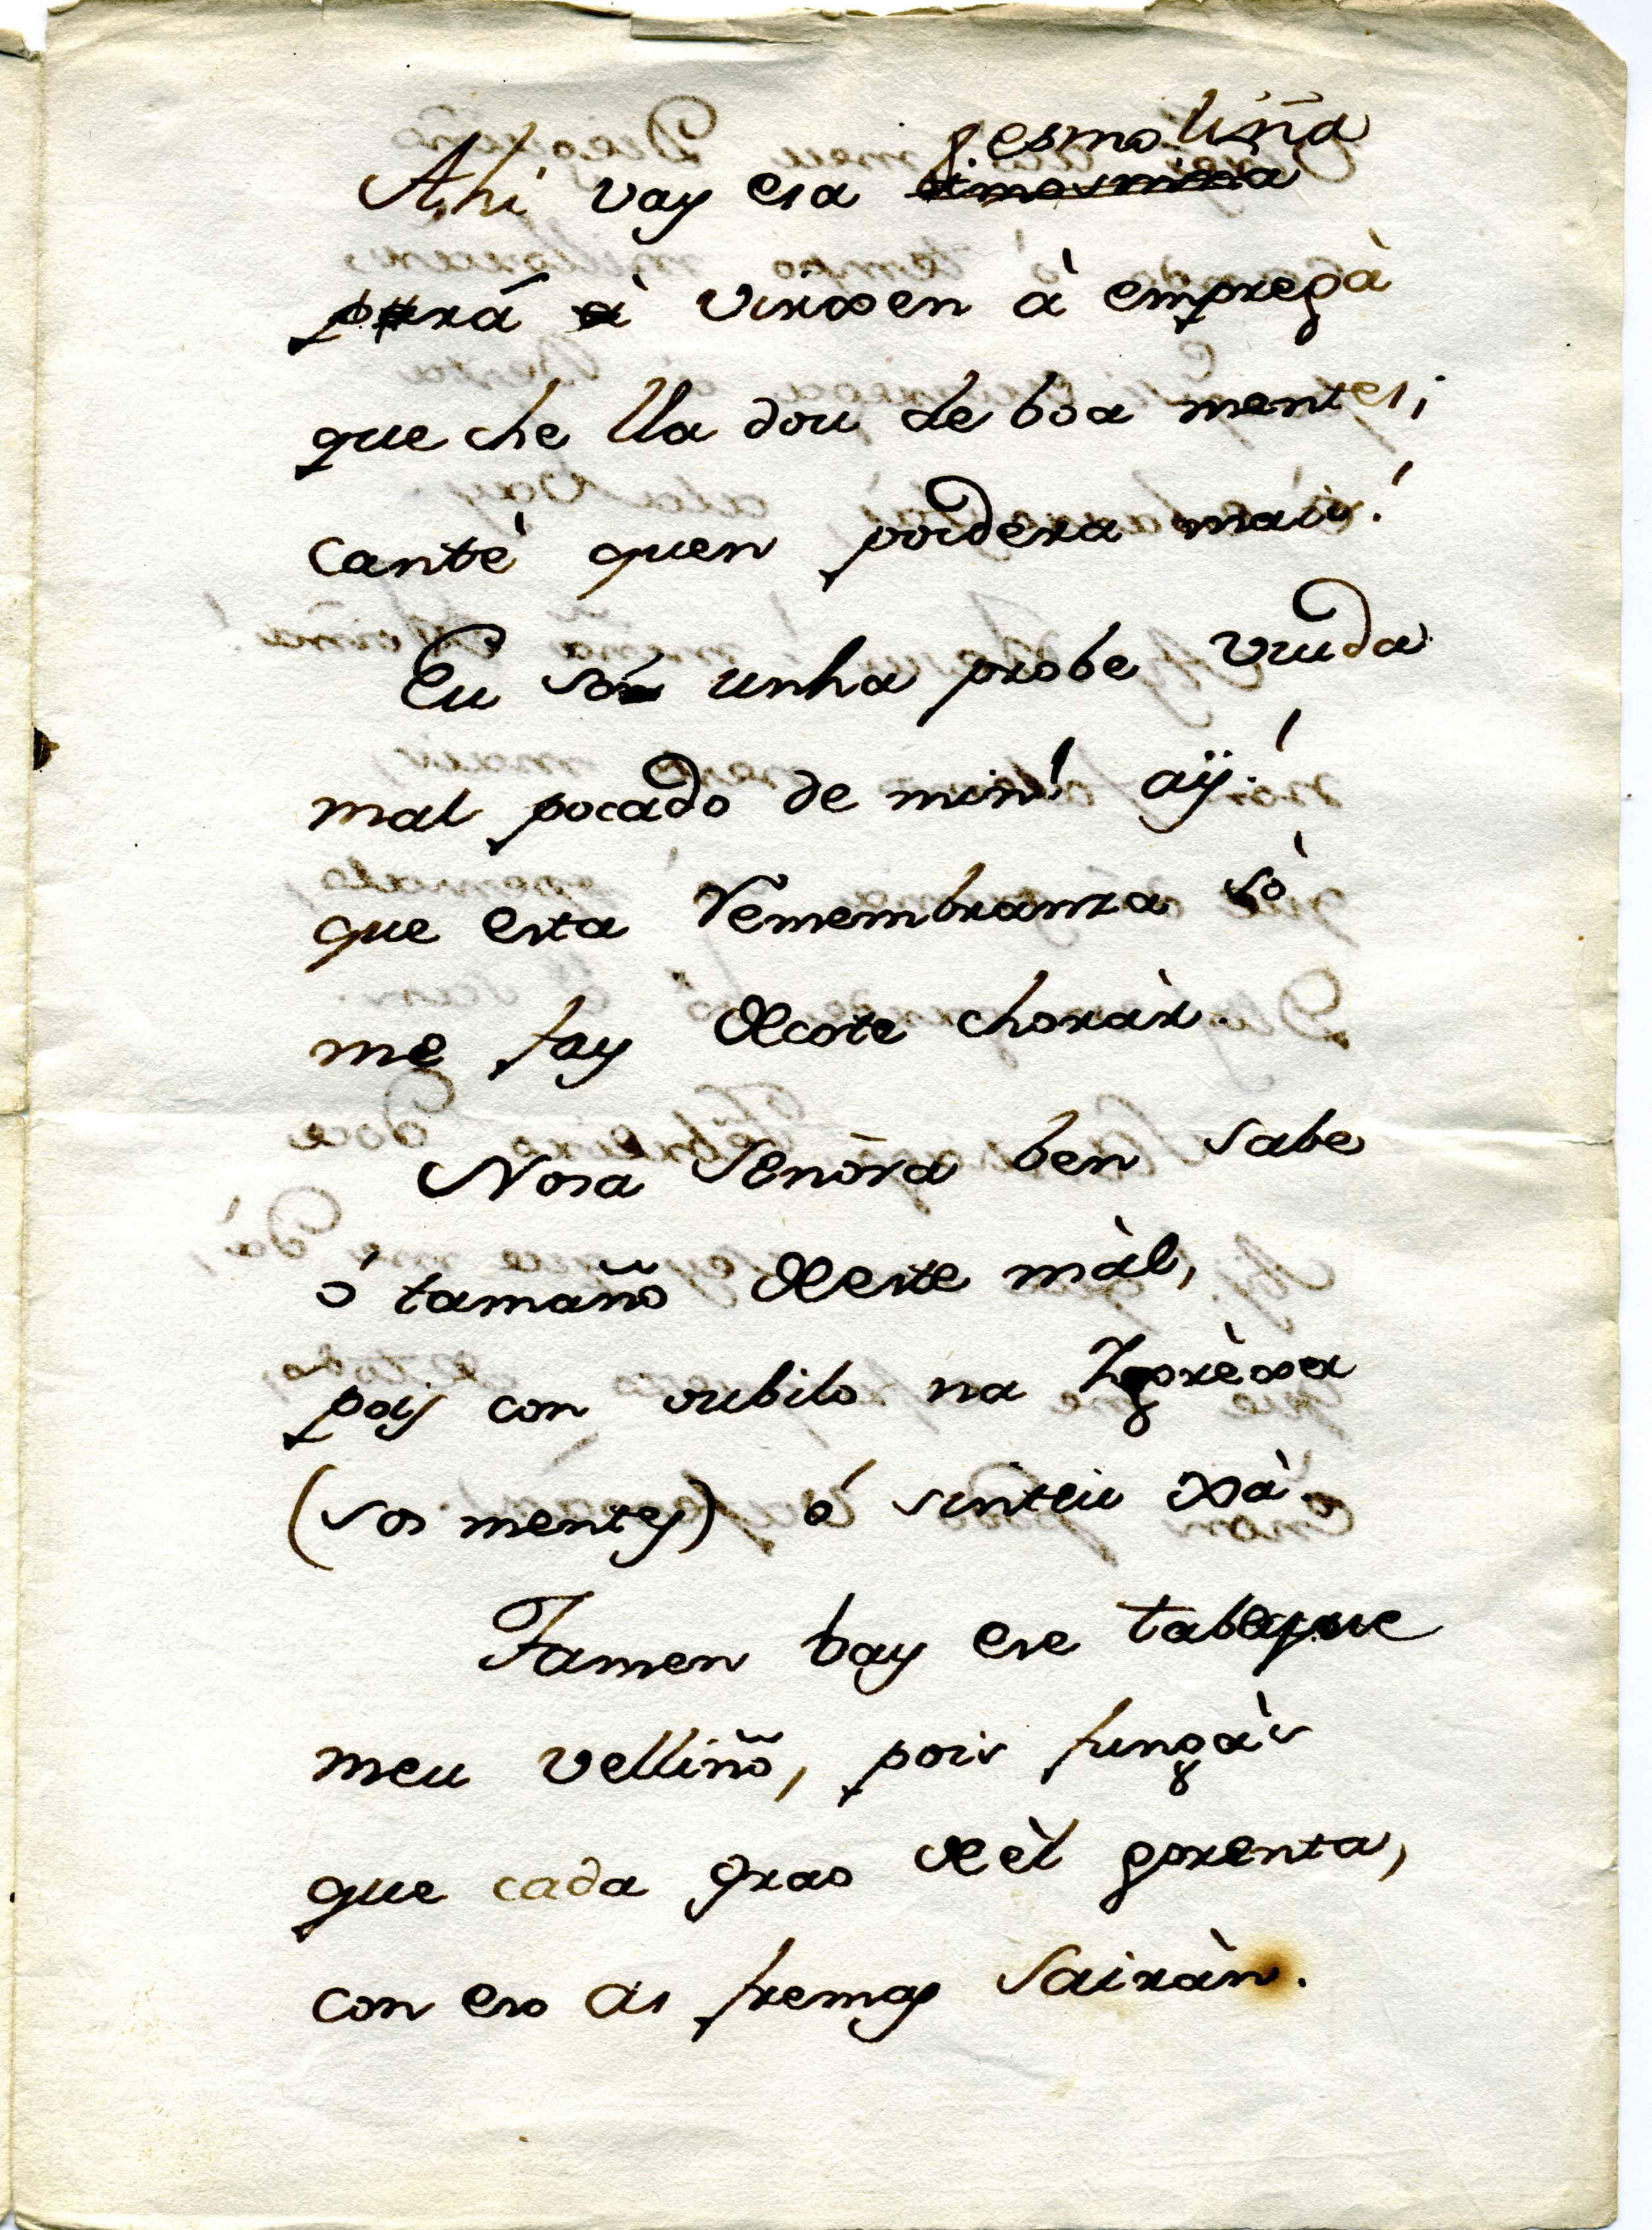 esmoliña
Ahi vay esa
prá Virxen à empregà
que che lla dou de boa mentes;
cantè quen poidera mais!
Eu só unha probe viuda
mal pocado de min! aÿ!
que esta remembranza sò
me fay decote choràr.
Nosa Señòra ben sabe
ó tamaño deste màl,
pois con oubilo na Igrèxa
(sos mentes) ó sinteu xà.
Tamen bay ese tabaque
meu velliño, pois fungàs
que cada grao dèl gorenta,
con eso as fremas sairàn.